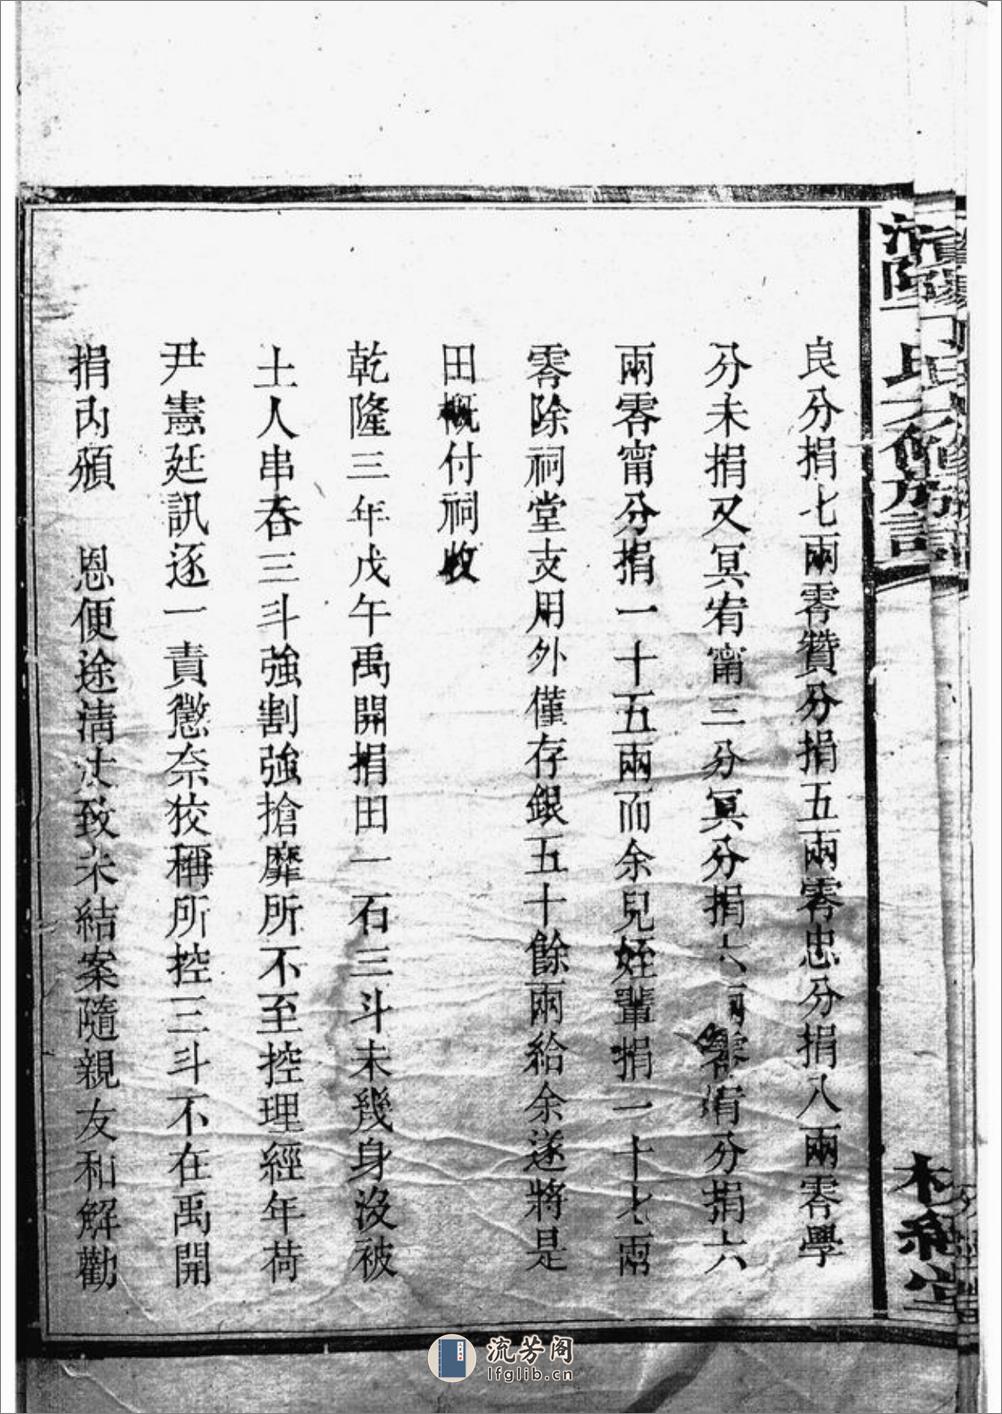 良分捐七兩零贊分捐五兩零忠分捐八兩零學
分未捐又冥宥甯三分冥分捐六兩零宥分捐六
兩零甯分捐一十五兩而余兒姪輩捐一十七兩
零除祠堂支用外僅存銀五十餘兩給余遂將是
田概付祠收
乾隆三年戊午禹開捐田一石三斗未幾身沒被
土人串吞三斗強割強搶靡所不至控理經年荷
尹憲廷訊逐一責懲奈狡稱所控三斗不在禹開
捐內頒 恩便途清丈致未結案隨親友和解勸
流芳阁
lfglib.cn